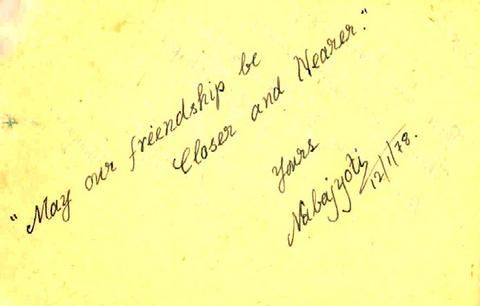 "May our friendship be
Closer and Nearer."
Yours
Nabajyoti
12/1/78.